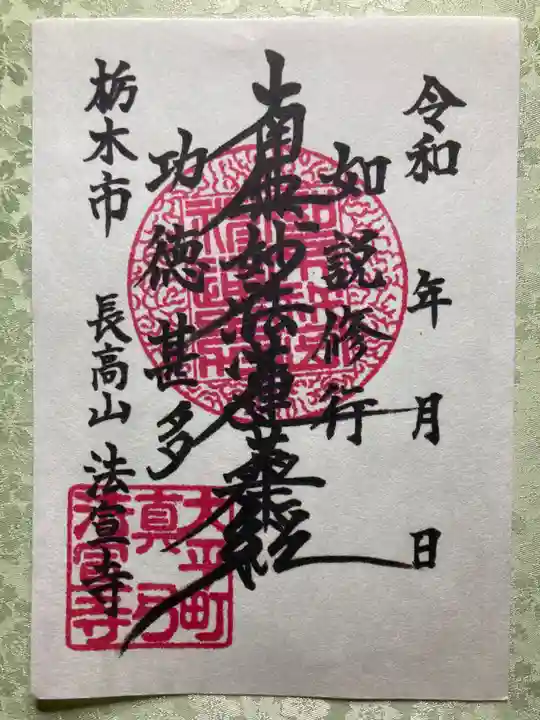 令和 年 月 日
如説修行
南無妙法蓮華経
功徳甚多
栃木市 長高山 法宣寺
大平町
真弓
法宣寺